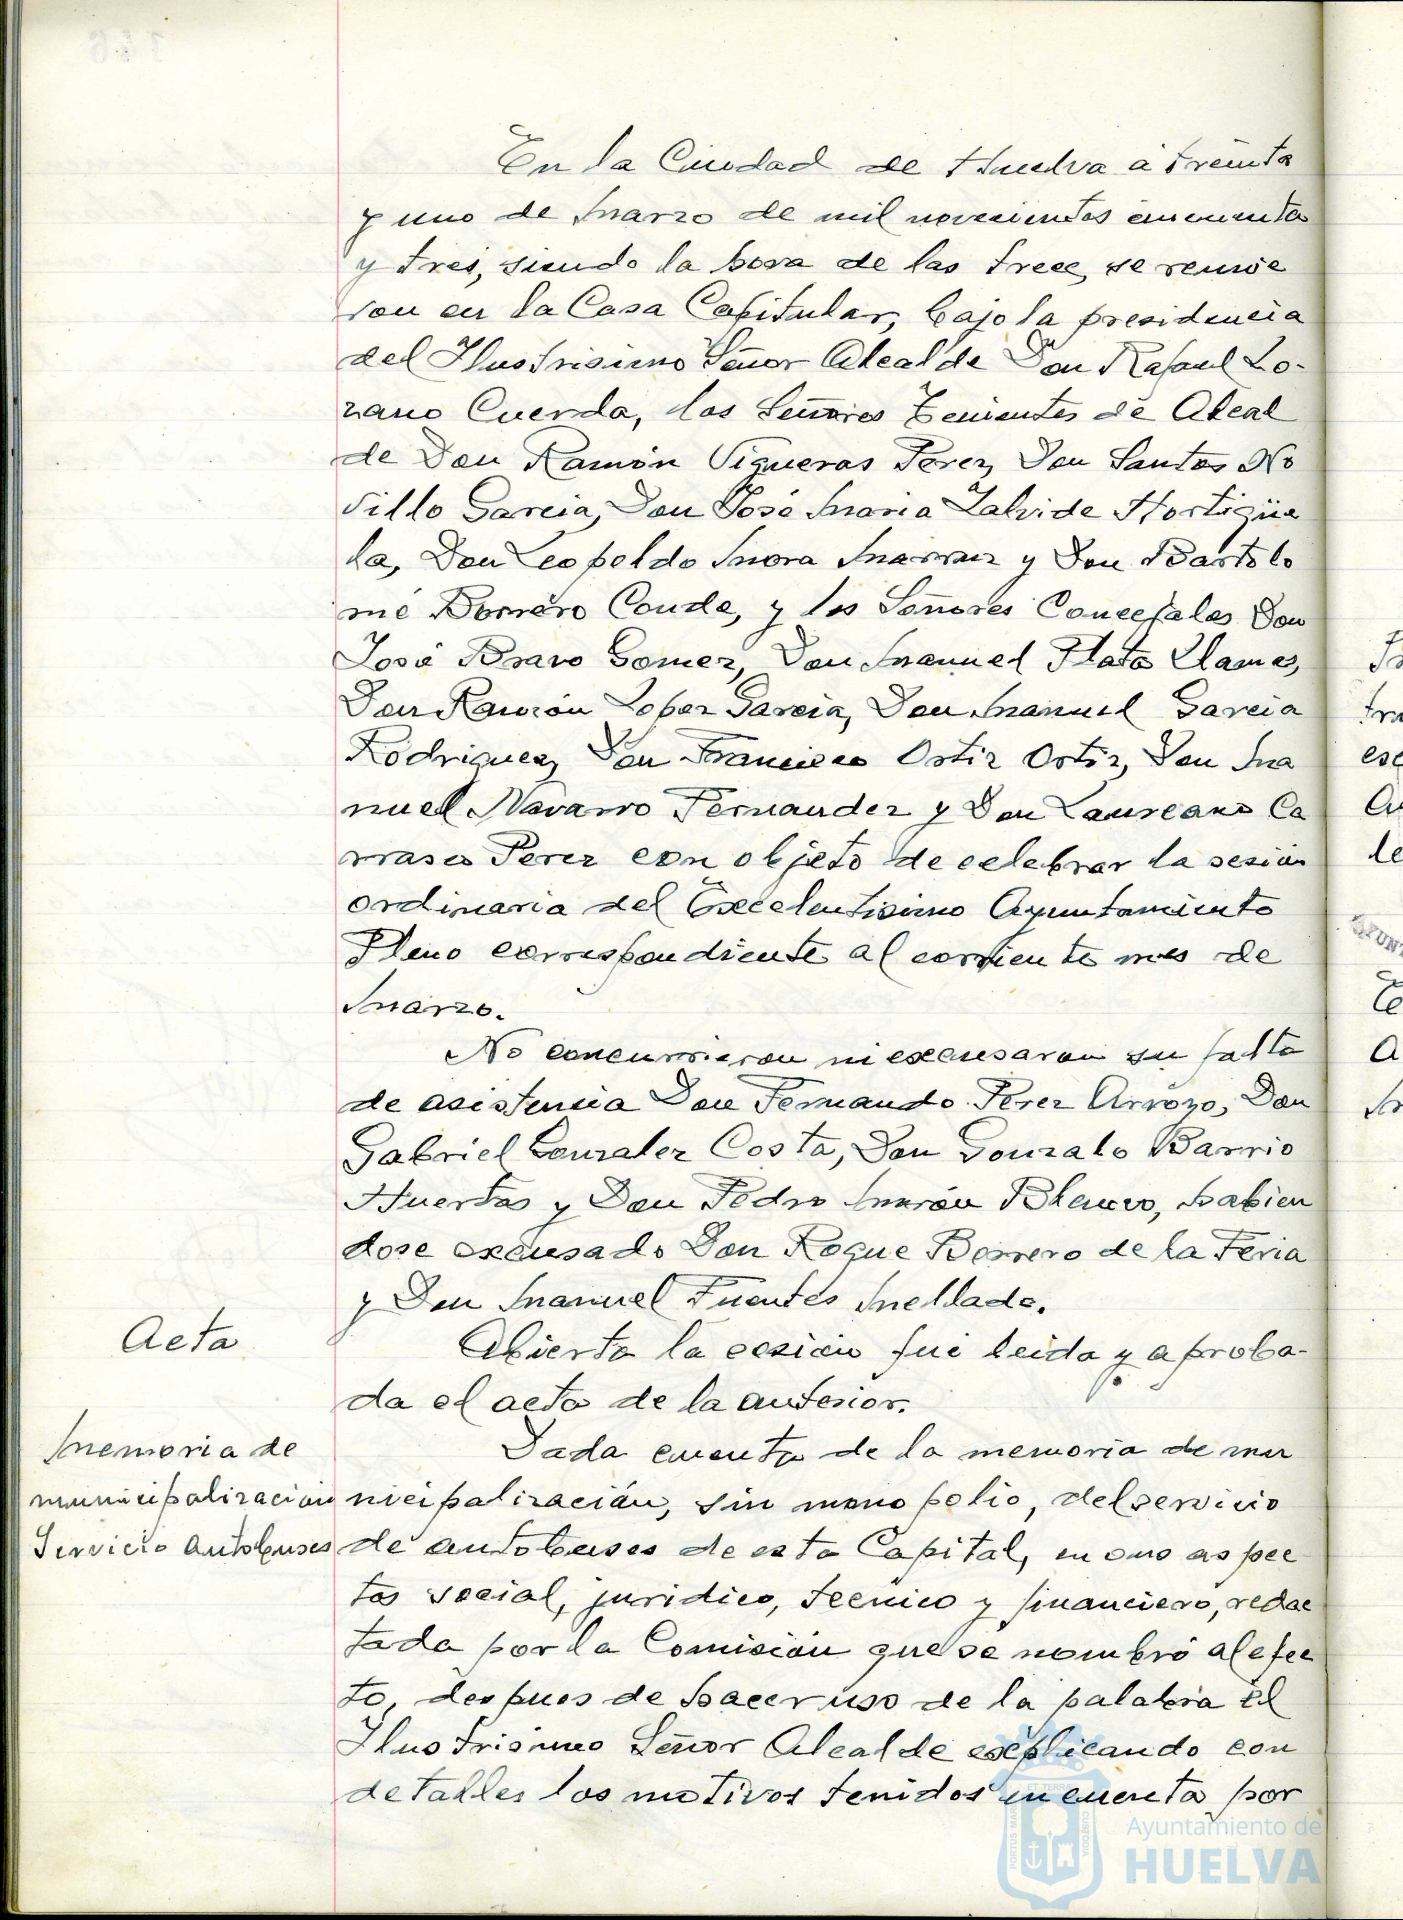 En la Ciudad de Huelva a treinta
y uno de Marzo de mil novecientos cincuenta
y tres, siendo la hora de las trece, se reunie
ron en la Casa Capitular, bajo la presidencia
del Ilustrisimo Señor Alcalde Don Rafael Lo-
zano Cuerda, los Señores Tenientes de Alcal
de Don Ramón Vigueras Perez, Don Santos No
villo Garcia, Don José Maria Zalvide Hortigüe
la, Don Leopoldo Mora Marruz y Don Bartolo
mé Borrero Conde, y los Señores Concejales Don
José Bravo Gomez, Don Manuel Plata Llamas,
Don Ramón Lopez Garcia, Don Manuel Garcia
Rodriguez, Don Francisco Ortiz Ortiz, Don Ma
nuel Navarro Fernandez y Don Laureano Ca
rrasco Perez con objeto de celebrar la sesión
ordinaria del Excelentisimo Ayuntamiento
Pleno correspondiente al corriente mes de
Marzo.
No concurrieron ni excusaron su falta
de asistencia Don Fernando Perez Arroyo, Don
Gabriel Gonzalez Costa, Don Gonzalo Barrio
Huertas y Don Pedro Morón Blanco, habien
dose excusado Don Roque Borrero de la Feria
y Don Manuel Fuentes Mellado.
Acta
Abierta la sesión fué leida y aproba-
da el acta de la anterior.
Memoria de
municipalización
Servicio autobuses
Dada cuenta de la memoria de mu
nicipalización, sin monopolio, del servicio
de autobuses de esta Capital, en sus aspec
tos social, juridico, tecnico y financiero, redac
tada por la Comisión que se nombró al efec
to, despues de hacer uso de la palabra el
Ilustrisimo Señor Alcalde explicando con
detalles los motivos tenidos en cuenta por
Ayuntamiento de
HUELVA